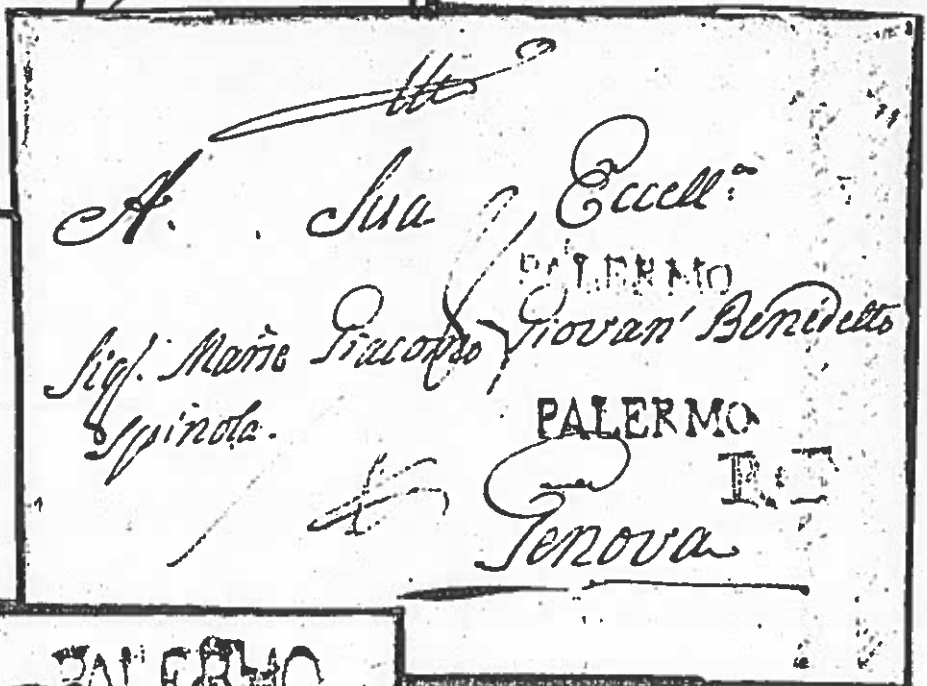 A. Sua Eccell.a
PALERMO
Sig.r Marie Giacomo Giovan' Benedetto
Spinola.
PALERMO
R.T
Genova
PALERMO